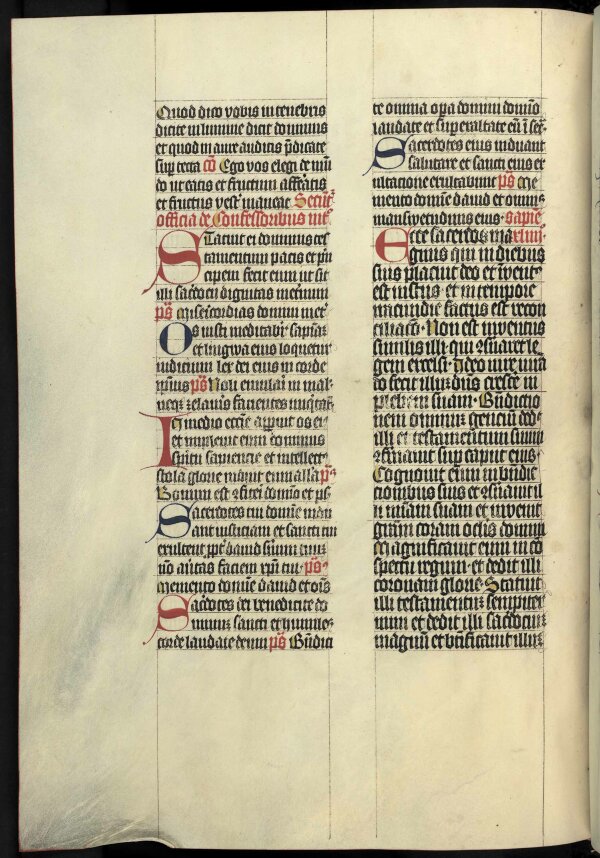 Quod dico vobis in tenebris
dicite in lumine dicit dominus
et quod in aure auditis p̄dicate
sup tecta cō Ego vos elegi de mū
do ut eatis et fructum afferatis
et fructus vest̄ maneat Secūt᷑
officia de Confessoribus int᷑
Statuit ei dominus tes
tamentum pacis et prin
cipem fecit eum ut sit
illi sac̄docij dignitas in et̄num
ps̄ Misericordias domini in et᷑
Os iusti meditabit᷑ sapiāz
et lingwa eius loquetur
iudicium lex dei eius in corde
ipsius ps̄ Noli emulari in mal᷑
neqꝫ zelaueris facientes iniq̄tat᷑
In medio ecc̄ie aperuit os ei᷑
et impleuit eum dominus
spiritu sapiencie et intellect᷑
stola glorie induit eum alla p᷑
Bonum est ꝯfiteri domīo et ps̄
Sacerdotes tui domine indu
ant iusticiam et sancti tui
exultent ppt̄ dauid seruum tuum
nō au̅tas faciem xpī tui ps̄
Memento domine dauid et oīs
Sac̄dotes dei benedicite do
minum sancti et humiles
corde laudate deum ps̄ Bn̄dici
te omnia opa domini domīo
laudate et superexaltate eū ī sec̄
Sacerdotes eius induant
salutare et sancti eius ex
ultacione exultabunt ps̄ Me
mento domīe dauid et omīs
mansuetudinis eius sapiē
Ecce sacerdos ma xliiij
gnus qui in diebus
suis placuit deo et īuent᷑
est iustus et in tempore
iracundie factus est recon
ciliacō Non est inuentus
similis illi qui ꝯseruaret le
gem excelsi Ideo iureiura
do fecit illū dn̄s cresce᷑ in
plebem suam Bn̄dictio
nem omnium gencium ded᷑
illi et testamentum suum
ꝯfirmauit sup caput eius
Cognouit eum in bn̄dic
cionibus suis et ꝯseruauit il
li mīam suam et inuenit
graciam coram oclis domini
Magnificauit eum in co
spectu regum et dedit illi
coronam glorie Statuit
illi testamentum sempiter
num et dedit illi sac̄dociū
magnū et btificauit illum